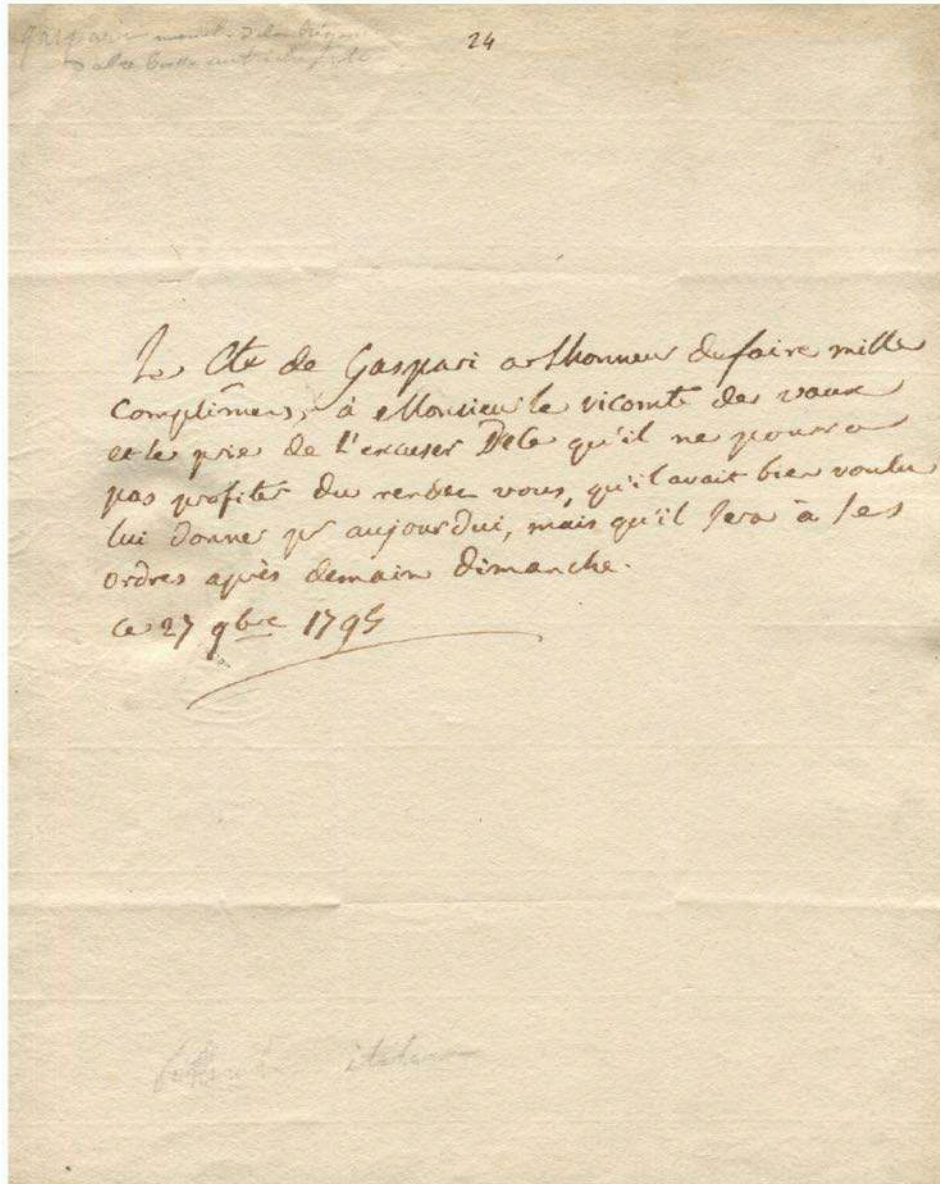 24
Le Cte de Gaspari a lhonneur de faire mille
Complimens, à Monsieur le vicomte de vaux
et le prie de L'excuser De Ce qu'il ne pourra
pas profiter du rendez vous, qu'il avait bien voulu
lui donner pr aujourdui, mais qu'il sera à ses
ordres après demain Dimanche.
ce 27 9bre 1795